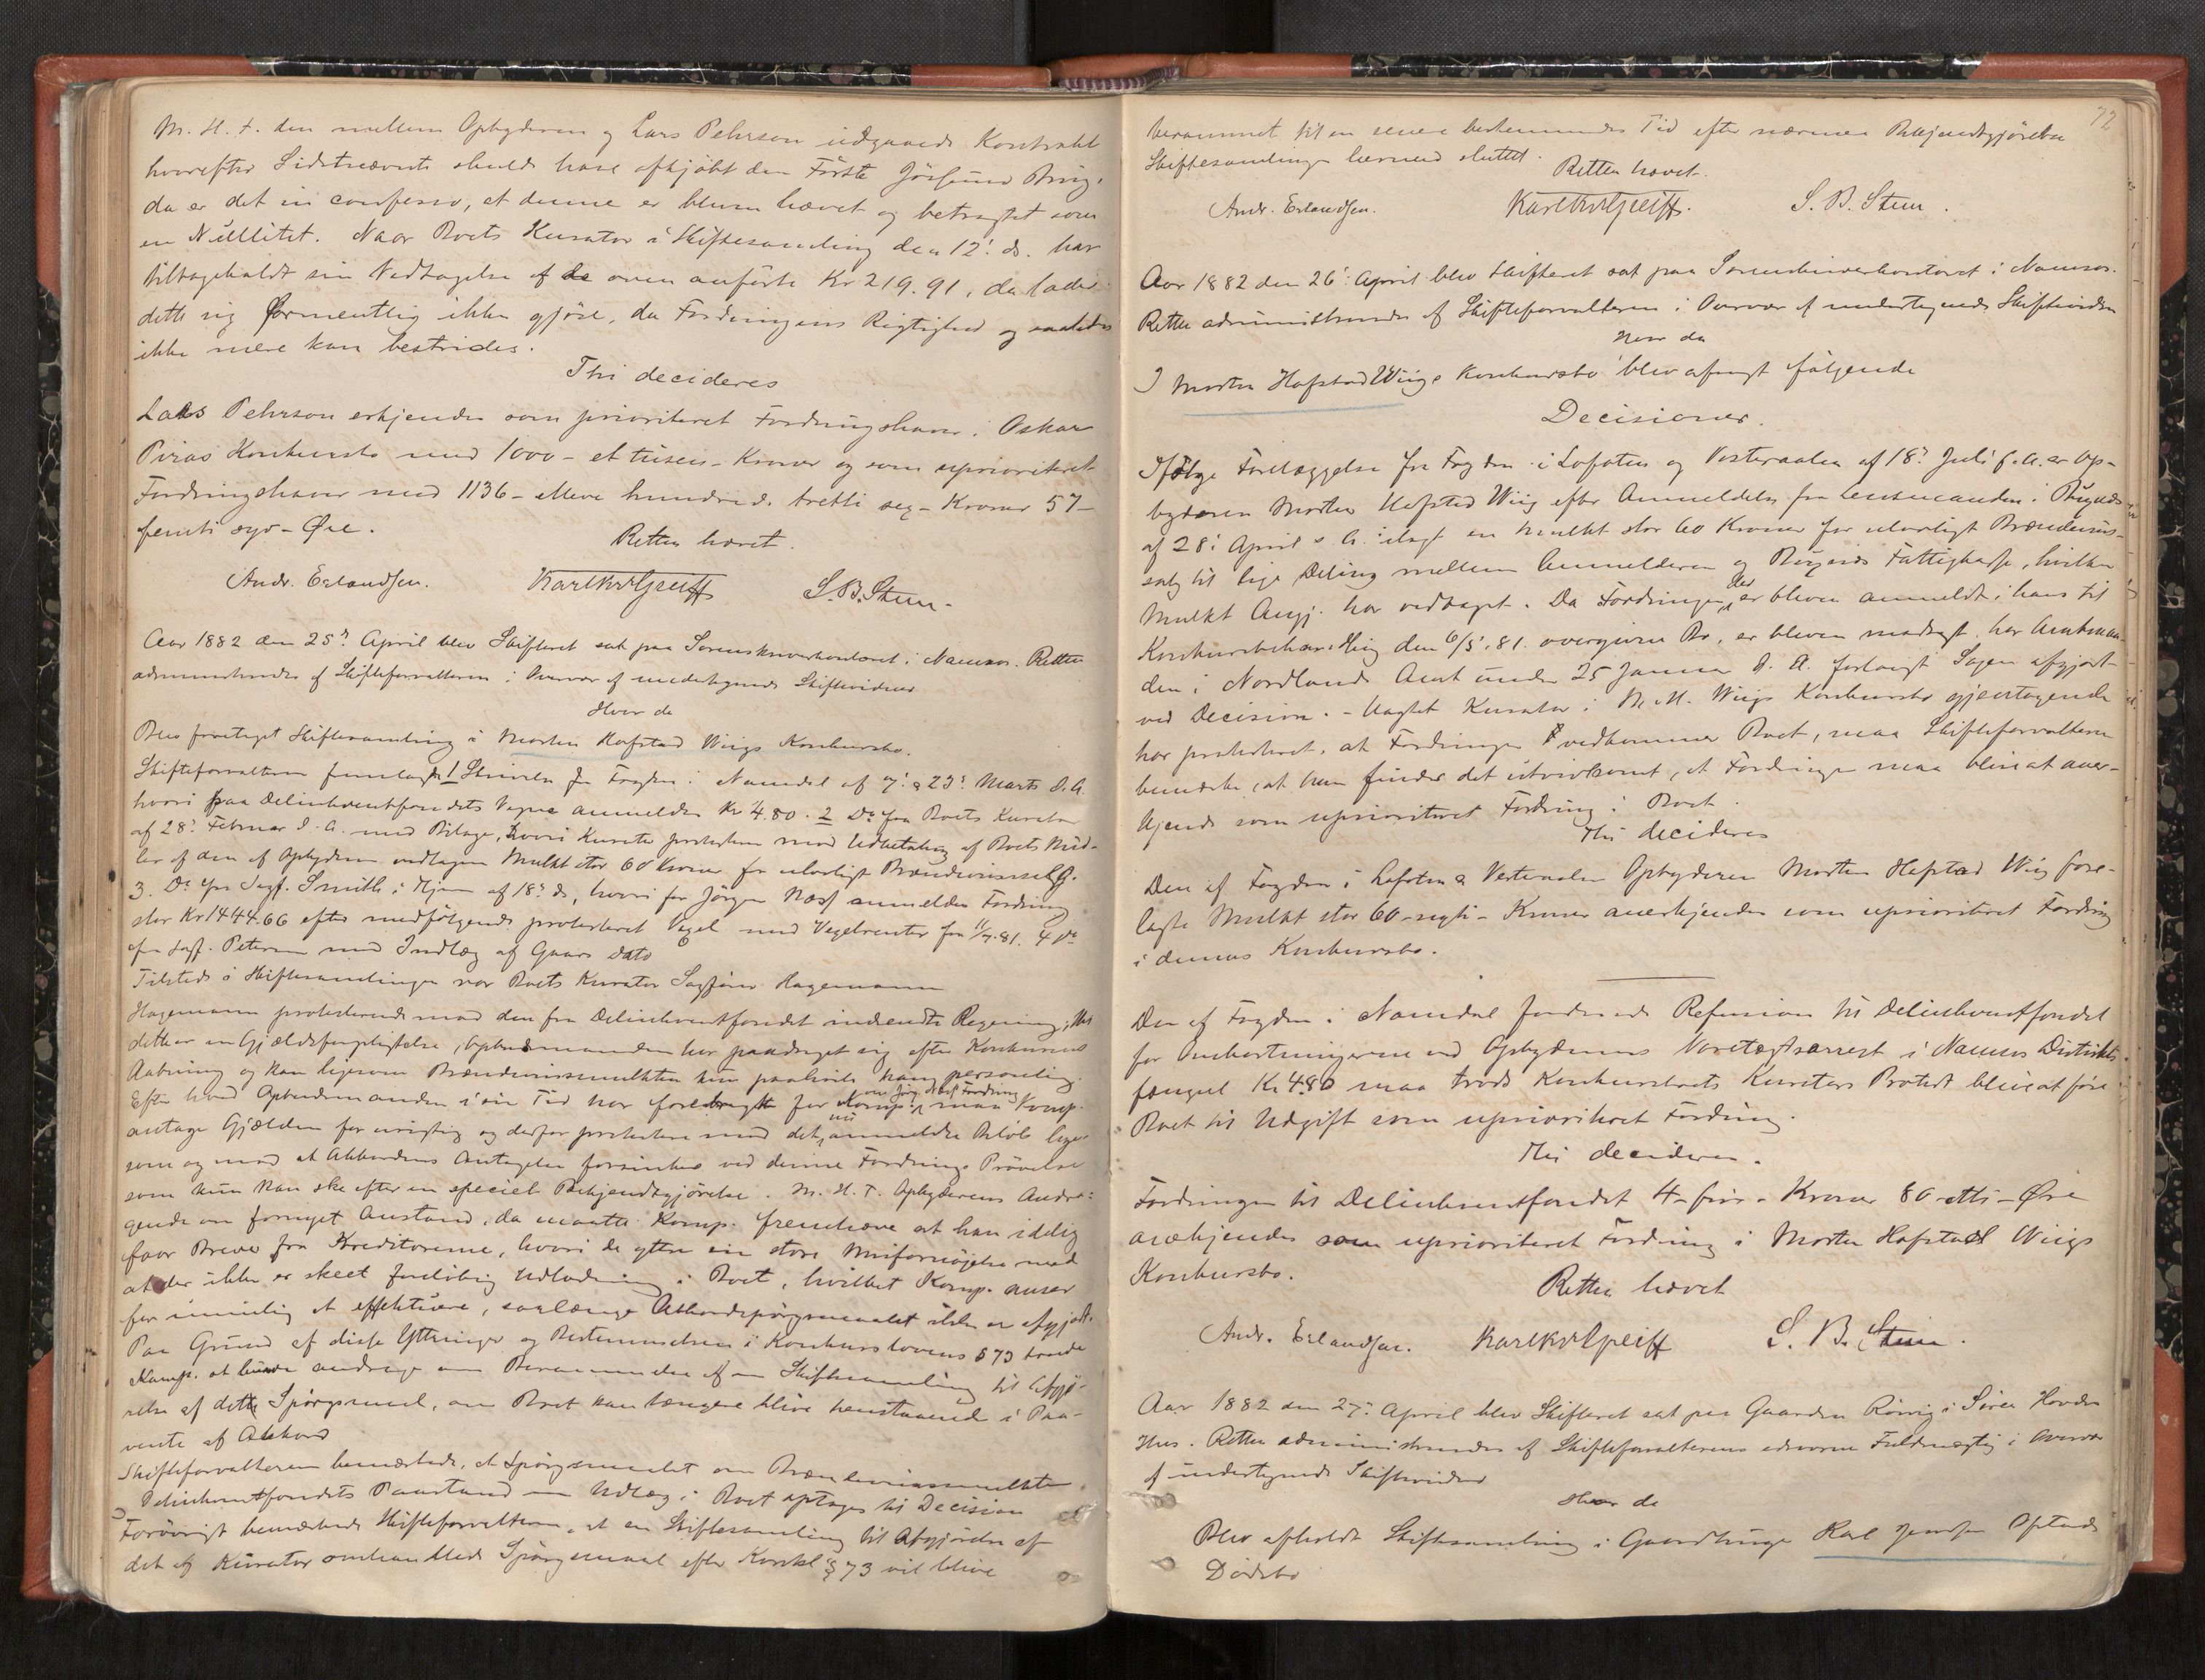 M. H. t. den mellem Opbyderen og Lars Pehrson indgaaede Kontrakt
hvorefter Sidstnævnte skulde have afkjøbt den Første Jörgens Brug,
da er det in confesso, at denne er bleven hævet og betragtet som
en Nullitet. Naar Boets Kurator i Skiftesamling den 12'. ds. har
tilbagekaldt sin Vedtagelse af de oven anførte Kr 219.91, da lader
dette sig formentlig ikke gjöre, da Fordringens Rigtighed og saaledes
ikke mere kan bestrides.
Thi decideres
Lars Pehrson erkjendes som prioriteret Fordringshaver i Oskar
Konkursbo med 1000 - et tusen - Kroner og som uprioriteret
Fordringshaver med 1136 - elleve hundrede tretti sex - Kroner 57 -
femti syv - Øre.
Retten hævet.
Andr. Erlandsen. S. B. Stene.
Aar 1882 den 25' April blev Skifteret sat paa Sorenskriverkontoret i Namsos. Retten
administreredes af Skifteforvalteren i Overvær af undertegnede Skiftevidner
Hvor da
Blev foretaget Skiftesamling i Morten Hofstad Wiigs Konkursbo.
Skifteforvalteren fremlagde 1 Skrivelse fra Fogden i Namdal af 7' & 23' Marts d. A.
hvori paa Delinkventfondets Vegne anmeldes Kr 4.80. 2 Do fra Boets Kurator
af 28' Februar d. A. med Bilage, hvori Kurator protesterer mod Udbetaling af Boets Mid-
ler af den af Opbyderen vedtagne Mulkt stor 60 Kroner for ulovligt Brændevinssalg.
3. Do fra Sagf. Smith af 18' ds, hvori for Jörgen Næss anmeldes Fordring
stor Kr 1444.66 efter medfölgende protesteret Vexel med Vexelrenter fra 11/7.81. 4 Do
fra Sagf. Petersen med Indlæg af Gaars Dato
Tilstede i Skiftesamlingen var Boets Kurator Sagförer Hagemann
Hagemann protesterede mod den fra Delinkventfondet indsendte Regning, thi
dette er en Gjældsforpligtelse, Opbudsmanden har paadraget sig efter Konkursens
Aabning og kan ligesom Brændevinsmulkten kun paahvile ham personlig.
Efter hvad Opbudsmanden i sin Tid har forebragt for Komp. om Jörg. Næss' Fordring maa Komp.
antage Gjælden for urigtig og derfor protestere mod det nu anmeldte Belöb lige-
som og mod at Akkordens Antagelse forsinkes ved denne Fordrings Prövelse
som kun kan ske efter en speciel Bekjendtgjörelse. M. H. T. Opbyderens Andra-
gende om fornyet Anstand, da maatte Komp. fremhæve at han idelig
faar Breve fra Kreditorerne, hvori de yttre sin store Misfornöjelse med
at der ikke er skeet forelöbig Udlodning i Boet, hvilket Komp. anser
for umulig at effektuere, saalænge Akkordspörgsmaalet ikke er afgjort.
Paa Grund af disse Yttringer og Bestemmelsen i Konkurslovens § 73 troede
Komp. at burde andrage om Berammelse af en Skiftesamling til Afgjö-
relse af dette Spörgsmaal, om Boet kan længere blive henstaaende i Paa-
vente af Akkord
Skifteforvalteren bemærkede, at Spörgsmaalet om Brændevinsmulkten
Delinkventfondets Paastand om Udlæg i Boet optages til Decision
Forövrigt bemærkede Skifteforvalteren, at en Skiftesamling til Afgjörelse af
det af Kurator omhandlede Spörgsmaal efter Konksl § 73 vil blive
72
berammet til en senere bestemmende Tid efter nærmere Bekjendtgjörelse
Skiftesamlingen hermed sluttet.
Retten hævet.
Andr. Erlandsen. S. B. Stene.
Aar 1882 den 26' April blev Skifteret sat paa Sorenskriverkontoret i Namsos.
Retten administreredes af Skifteforvalteren i Overvær af undertegnede Skiftevidner
Hvor da
I Morten Hofstad Wiigs Konkursbo blev afsagt fölgende
Decisioner.
Ifölge Forelæggelse fra Fogden i Lofoten og Vesteraalen af 18' Juli f. A. er Op-
byderen Morten Hofstad Wiig efter Anmeldelse fra Lensmanden i
af 28' April s. A. ilagt en Mulkt stor 60 Kroner for ulovligt Brændevins-
salg til lige Deling mellem Anmelderen og Fattigkasse, hvilken
Mulkt Angj. har vedtaget. Da Fordringen, der er bleven anmeldt i hans til
Konkursbehandling den 6/5.81. overgivne Bo, er bleven modsagt, har Amtman-
den i Nordlands Amt under 25 Januar d. A. forlangt Sagen afgjort
ved Decision. - Uagtet Kurator i M. H. Wiigs Konkursbo gjentagende
har protesteret, at Fordringen vedkommer Boet, maa Skifteforvalteren
bemærke, at han finder det utvivlsomt, at Fordringen maa blive at aner-
kjende som uprioriteret Fordring i Boet.
Thi decideres
Den af Fogden i Lofoten & Vesteraalen Opbyderen Morten Hofstad Wiig fore-
lagte Mulkt stor 60 - sexti - Kroner anerkjendes som uprioriteret Fordring
i dennes Konkursbo.
Den af Fogden i Namdal fordrede Refusion til Delinkventfondet
for Omkostningerne ved Opbyderens Varetægtsarrest i Namsos Distrikts-
fængsel Kr 4.80 maa trods Konkursboets Kurators Protest blive at före
Boet til Udgift som uprioriteret Fordring.
Thi decideres.
Fordringen til Delinkventfondet 4 - fire - Kroner 80 - otti - Øre
anerkjendes som uprioriteret Fordring i Morten Hofstad Wiigs
Konkursbo.
Retten hævet
Andr. Erlandsen. S. B. Stene.
Aar 1882 den 27' April blev Skifteret sat paa Gaarden Rörvig i Sören
Hus. Retten administreredes af Skifteforvalterens edsvorne Fuldmægtig i Overvær
af undertegnede Skiftevidner
Hvor da
Blev afholdt Skiftesamling i Gaardbruger Karl Jensen
Dödsbo